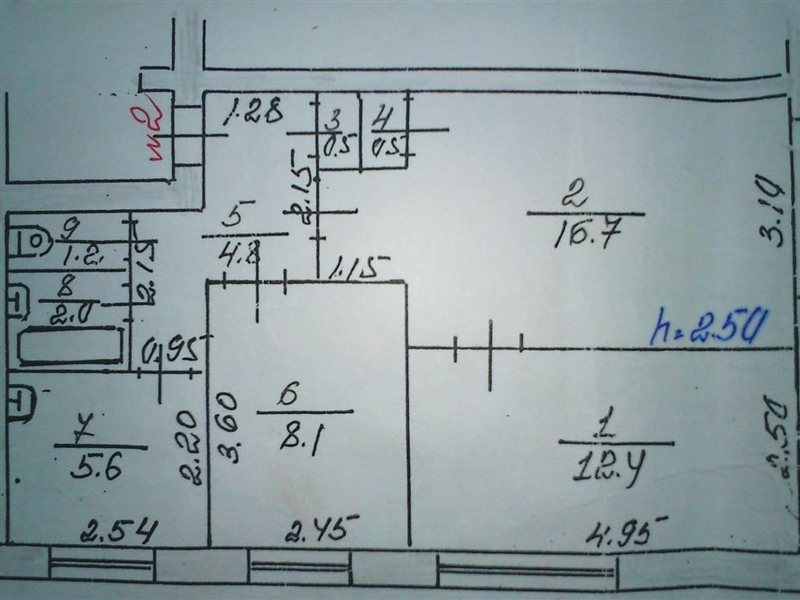 1.28
3
0.5
4
0.5
2.15
2
16.7
3.10
5
4.8
1.15
9
1.2
8
2.0
2.15
0.95
h=2.50
7
5.6
2.20
3.60
6
8.1
1
12.4
2.50
2.54
2.45
4.95